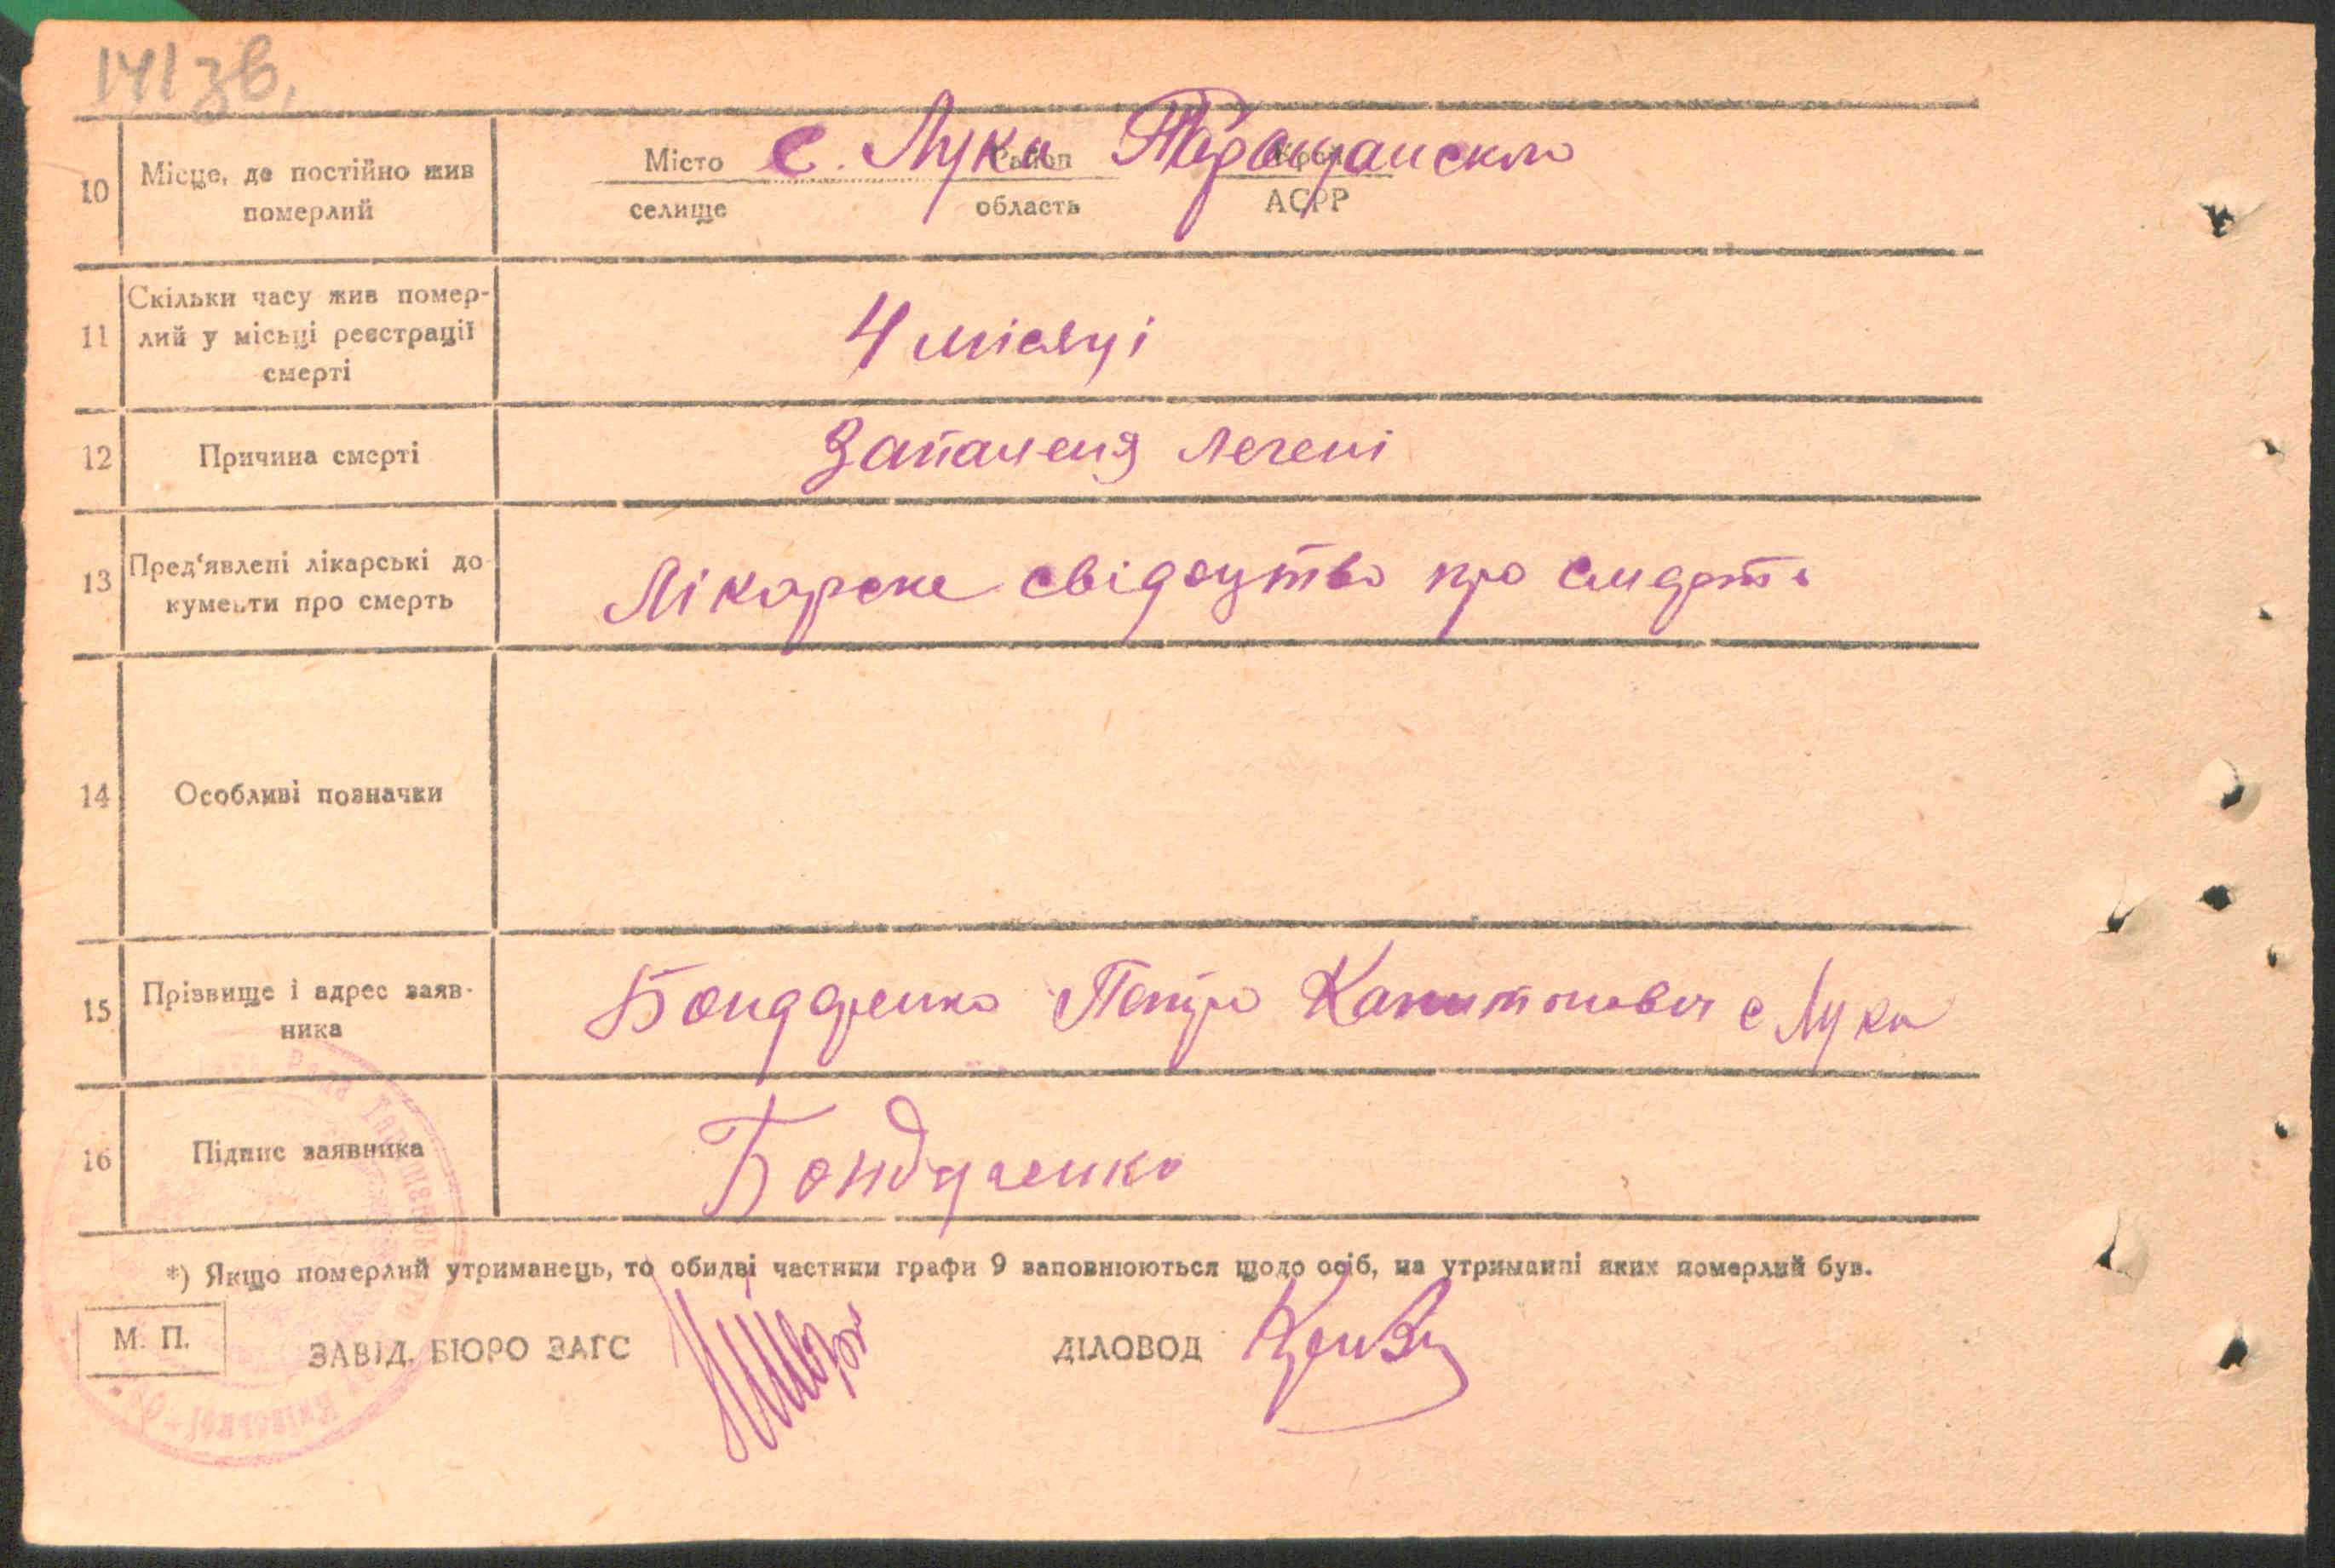 141 зв.
10
Місце, де постійно жив
померлий
Місто с. Лука Район Таращанского
селище область АСРР
11
Скільки часу жив помер-
лий у місьці реєстрації
смерті
4 місяці
12
Причина смерті
Запаленя легені
13
Пред‘явлені лікарські до-
кументи про смерть
Лікарске свідоцтво про смерть
14
Особливі позначки
15
Прізвище і адрес заяв-
ника
Бондаренко Петро Капитонович с Лука
16
Підпис заявника
Бондаренко
*) Якщо померлий утриманець, то обидві частини графи 9 заповнюються щодо осіб, на утриманні яких померлий був.
М. П.
ЗАВІД. БЮРО ЗАГС
ДІЛОВОД